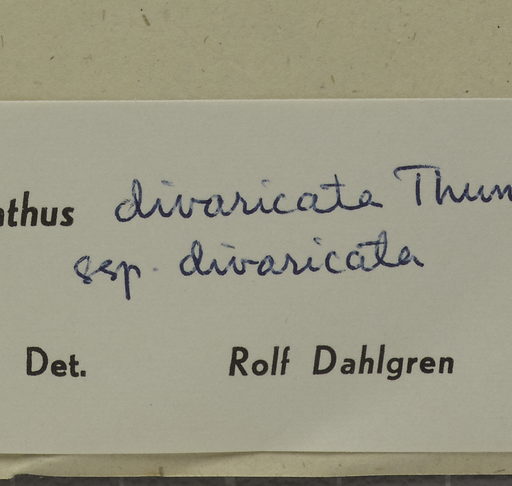 nthus divaricata Thun
ssp. divaricata
Det. Rolf Dahlgren